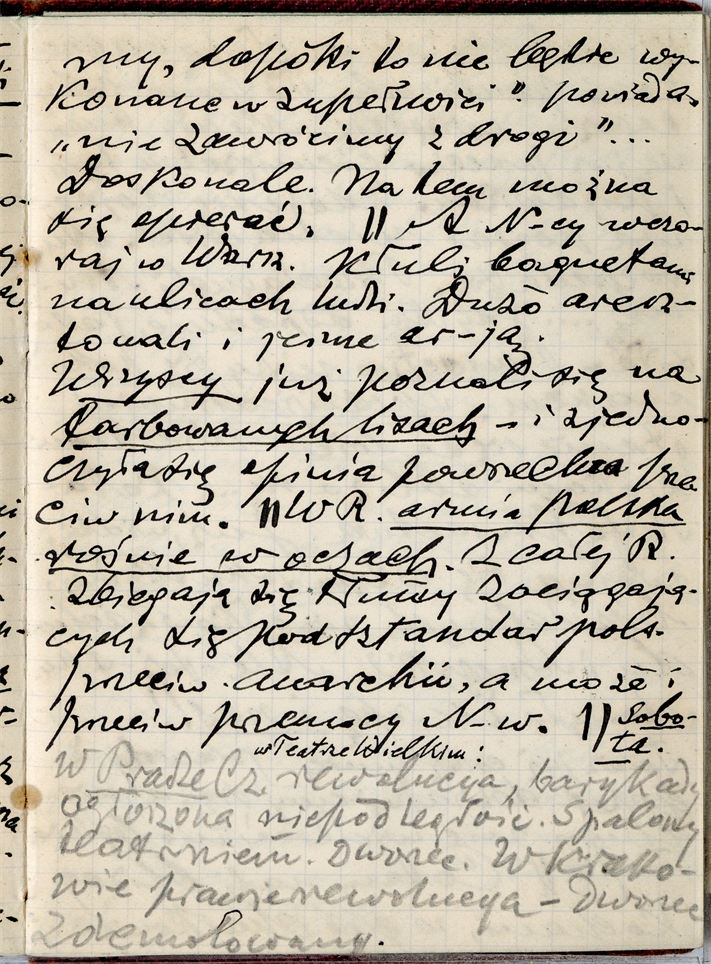 my, dopóki to nie będzie wy-
konane w zupełności". powiada.
„nie zawrócimy z drogi"...
Doskonale. Na tem można
się opierać. || A N-cy wczo-
raj w Warsz. Kłuli bagnetami
na ulicach ludzi. Dużo aresz-
towali i jeszcze ar-ją.
Wszyscy już poznali się na
farbowanych lisach - i zjedno-
czyła się opinia powszechna prze
ciw nim. || W R. armia polska
rośnie w oczach. Z całej R.
zbiegają się tłumy zaciągają-
cych się pod sztandar pols.
przeciw. anarchii, a może i
przeciw przemocy N-w. || Sobo-
ta.
w Teatrze Wielkim:
W Pradze Cz. rewolucya, barykady
ogłoszona niepodległość. Spalony
teatr niem. Dworzec. W Krako-
wie prawie rewolucya - Dworzec
zdemolowany.